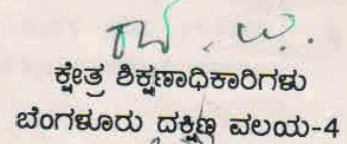 ಕ್ಷೇತ್ರ ಶಿಕ್ಷಣಾಧಿಕಾರಿಗಳು
ಬೆಂಗಳೂರು ದಕ್ಷಿಣ ವಲಯ-4